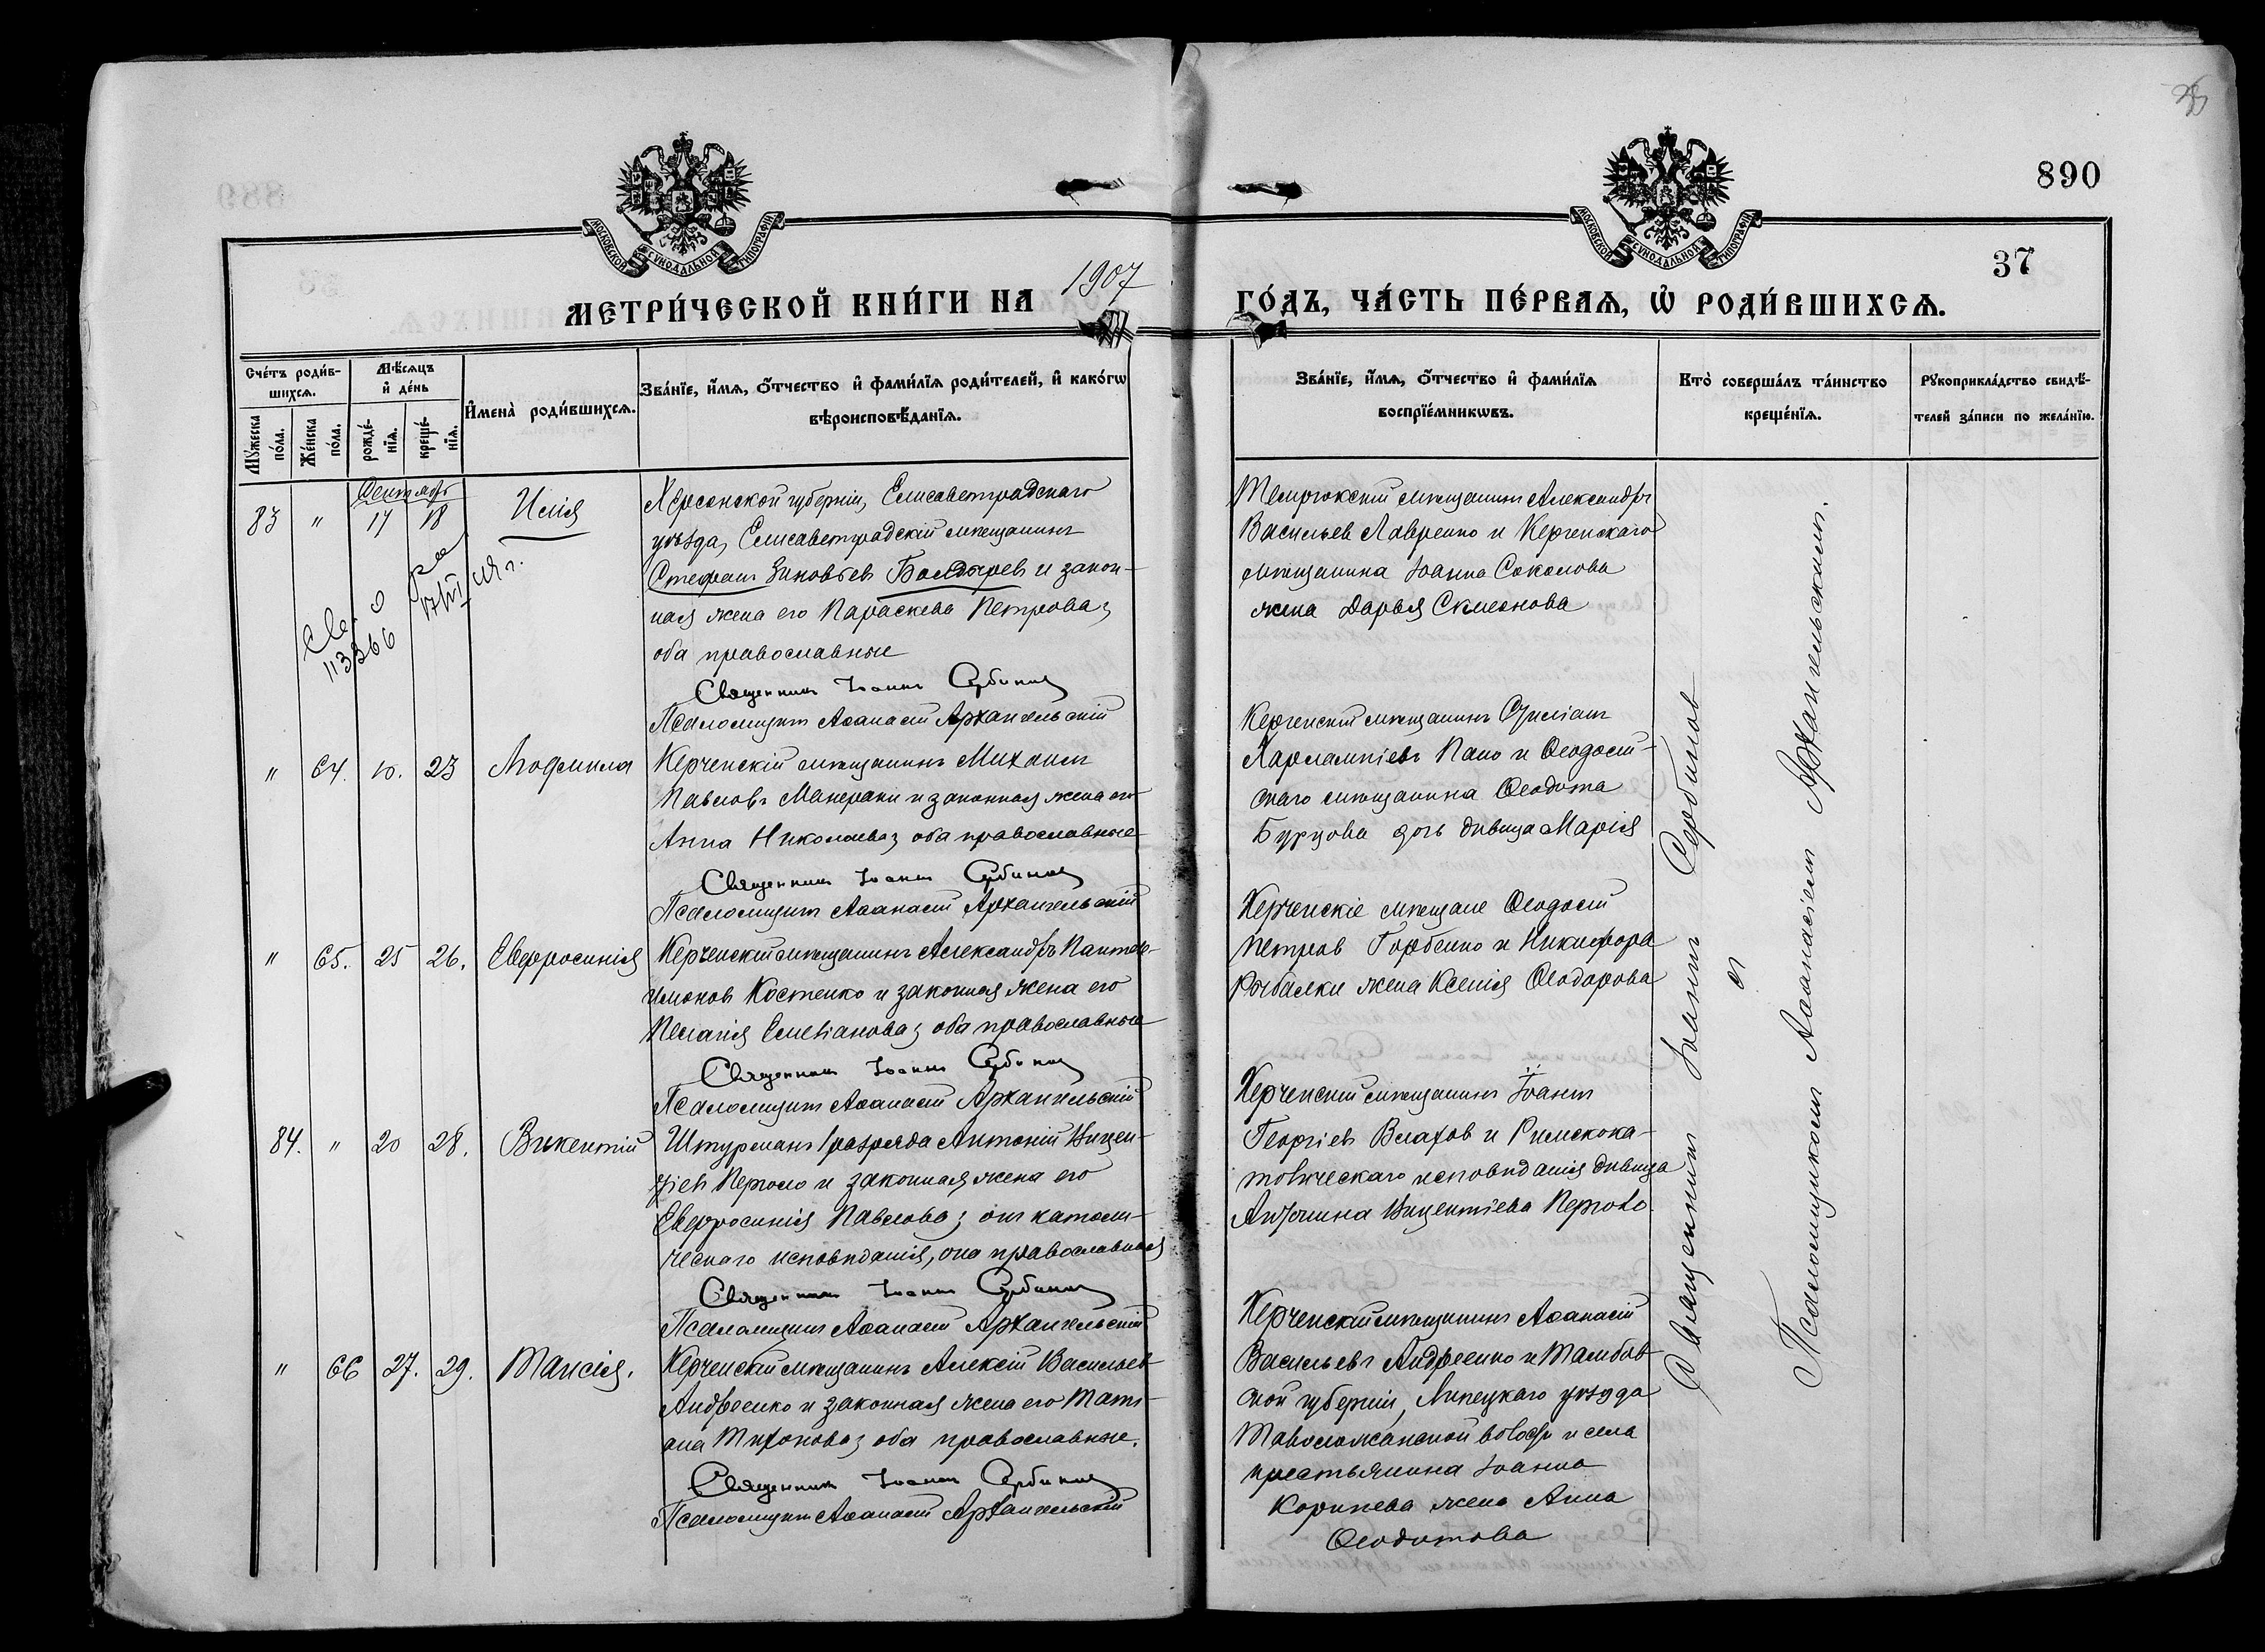 890
37
МОСКОВСКОЙ СУНОДАЛЬНОЙ ТИПОГРАФІИ
МОСКОВСКОЙ СУНОДАЛЬНОЙ ТИПОГРАФІИ
МЕТРИ́ЧЕСКОЙ КНИ́ГИ НА 1907 ГО́ДЪ, ЧА́СТЬ ПЕ́РВАѦ, Ѡ҆ РОДИ́ВШИХСѦ.
Сче́тъ роди́в-
шихсѧ.
Мꙋ́жеска по́ла.
Же́нска по́ла.
Мѣ́сѧцъ
и҆ де́нь
рожде́-
нїѧ.
креще́-
нїѧ.
И҆мена̀ роди́вшихсѧ.
Зва́нїе, и҆́мѧ, ѻ҆́тчество и҆ фами́лїѧ роди́телей, и҆ како́гѡ
вѣроисповѣ́данїѧ.
Зва́нїе, и҆́мѧ, ѻ҆́тчество и҆ фами́лїѧ
воспрїе́мникѡвъ.
Кто̀ соверша́лъ та́инство
креще́нїѧ.
Рꙋкоприкла́дство свидѣ́-
телей за́писи по жела́нїю.
Сентябрь
83 " 17 18 Исаія
Херсонской губерніи, Елисаветградскаго
уѣзда, Елисаветградскій мѣщанинъ
Стефанъ Зиновьев Болдырев и закон-
ная жена его Параскева Петрова;
оба православные
Священникъ Іоаннъ Сербинов
Псаломщикъ Аѳанасій Архангельскій
Темрюкскій мѣщанинъ Александръ
Васильев Лавренко и Керченскаго
мѣщанина Іоанна Соколова
жена Дарья Симонова
113366
" 64. 10. 23 Людмила
Керченскій мѣщанинъ Михаилъ
Павловъ Манераки и законная жена его
Анна Николаева; оба православные
Священникъ Іоаннъ Сербинов
Псаломщикъ Аѳанасій Архангельскій
Керченскій мѣщанинъ Стиліанъ
Харлампіевъ Папо и Ѳеодосій-
скаго мѣщанина Ѳеодота
Бурцова дочь дѣвица Марія
" 65. 25 26. Евфросинія
Керченскій мѣщанинъ Александръ Панте-
лимонов Костенко и законная жена его
Пелагія Емеліанова; оба православные
Священникъ Іоаннъ Сербинов
Псаломщикъ Аѳанасій Архангельскій
Керченскіе мѣщане Ѳеодосій
Петров Горбенко и Никифора
Рыбалки жена Ксенія Ѳеодорова
84. " 20 28. Викентій
Штурманъ 1 разряда Антоній Вицен-
тіев Перголо и законная жена его
Евфросинія Павлова; онъ католи-
ческаго исповѣданія, она православная
Священникъ Іоаннъ Сербинов
Псаломщикъ Аѳанасій Архангельскій
Керченскій мѣщанинъ Іоаннъ
Георгіев Влахов и Римскока-
толическаго исповѣданія дѣвица
Антонина Вицентіева Перголо.
" 66 27. 29. Таисія.
Керченскій мѣщанинъ Алексій Васильев
Андреенко и законная жена его Тати-
ана Тихонова; оба православные.
Священникъ Іоаннъ Сербинов
Псаломщикъ Аѳанасій Архангельскій
Керченскій мѣщанинъ Аѳанасій
Васильевъ Андреенко и Тамбов-
ской губерніи, Липецкаго уѣзда
Таволожанской волости и села
крестьянина Іоанна
Коринева жена Анна
Ѳеодотова
Священникъ Іоаннъ Сербинов
и
Псаломщикомъ Аѳанасіемъ Архангельскимъ.